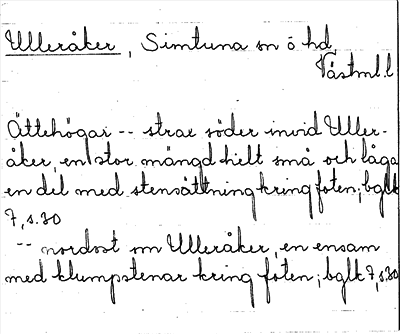 Ulleråker, Simtuna sn ö hd,
Västml.l
Ättehögar -- strax söder invid Uller-
åker, en stor mängd helt små och låga
en del med stensättning kring foten; bglk
7, s. 30
-- nordost om Ulleråker, en ensam
med klumpstenar kring foten; bglk 7, s. 30